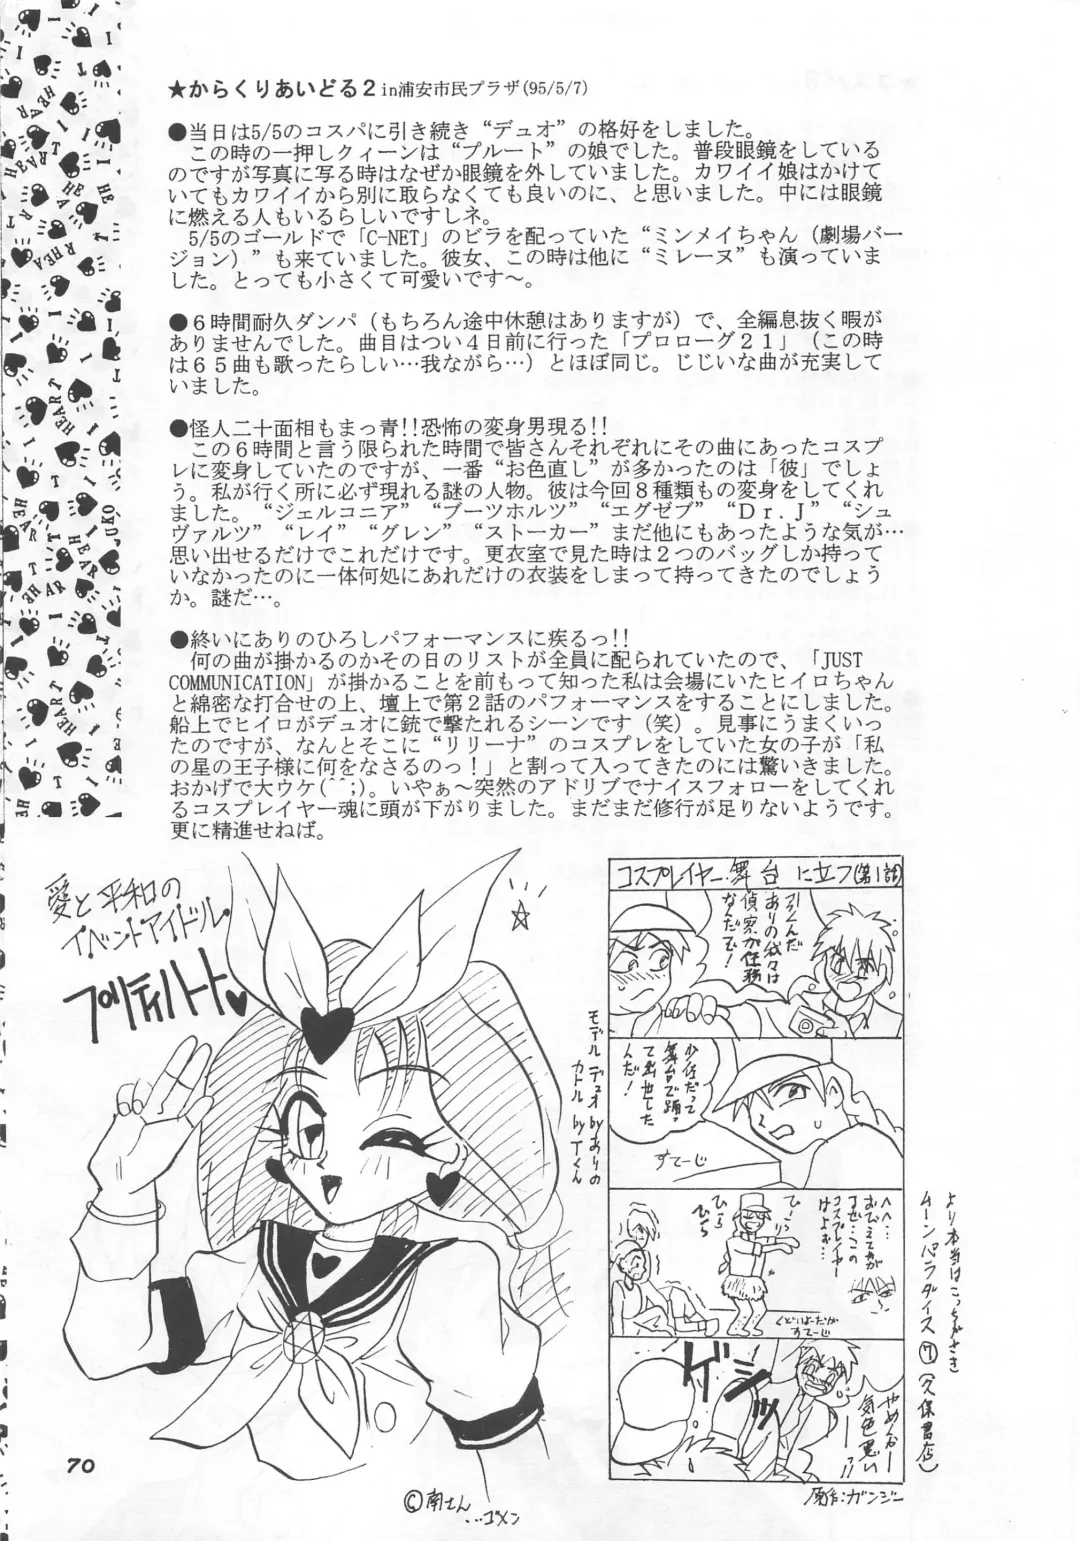 ★からくりあいどる2 in浦安市民プラザ(95/5/7)
●当日は5/5のコスパに引き続き“デュオ”の格好をしました。
この時の一押しクィーンは“プルート”の娘でした。普段眼鏡をしている
のですが写真に写る時はなぜか眼鏡を外していました。カワイイ娘はかけて
いてもカワイイから別に取らなくても良いのに、と思いました。中には眼鏡
に燃える人もいるらしいですしネ。
5/5のゴールドで「C-NET」のビラを配っていた“ミンメイちゃん（劇場バー
ジョン）”も来ていました。彼女、この時は他に“ミレーヌ”も演っていま
した。とっても小さくて可愛いです〜。
●６時間耐久ダンパ（もちろん途中休憩はありますが）で、全編息抜く暇が
ありませんでした。曲目はつい４日前に行った「プロローグ２１」（この時
は６５曲も歌ったらしい…我ながら…）とほぼ同じ。じじいな曲が充実して
いました。
●怪人二十面相もまっ青!!恐怖の変身男現る!!
この６時間と言う限られた時間で皆さんそれぞれにその曲にあったコスプ
レに変身していたのですが、一番“お色直し”が多かったのは「彼」でしょ
う。私が行く所に必ず現れる謎の人物。彼は今回８種類もの変身をしてくれ
ました。“ジェルコニア”“ブーツホルツ”“エグゼブ”“Ｄｒ.Ｊ”“シュ
ヴァルツ”“レイ”“グレン”“ストーカー”まだ他にもあったような気が…
思い出せるだけでこれだけです。更衣室で見た時は２つのバッグしか持って
いなかったのに一体何処にあれだけの衣装をしまって持ってきたのでしょう
か。謎だ…。
●終いにありのひろしパフォーマンスに疾るっ!!
何の曲が掛かるのかその日のリストが全員に配られていたので、「JUST
COMMUNICATION」が掛かることを前もって知った私は会場にいたヒイロちゃん
と綿密な打合せの上、壇上で第２話のパフォーマンスをすることにしました。
船上でヒイロがデュオに銃で撃たれるシーンです（笑）。見事にうまくいっ
たのですが、なんとそこに“リリーナ”のコスプレをしていた女の子が「私
の星の王子様に何をなさるのっ！」と割って入ってきたのには驚いきました。
おかげで大ウケ(^^;)。いやぁ〜突然のアドリブでナイスフォローをしてくれ
るコスプレイヤー魂に頭が下がりました。まだまだ修行が足りないようです。
更に精進せねば。
愛と平和の
イベントアイドル
プリティハート♥
コスプレイヤー舞台に立つ(第1話)
ありの我々は
偵察が任務
なんだぞ！
少佐だって
舞台で踊って
出世した
んだ！
すてーじ
モデル デュオ byありの
カトル by Tくん
ひら
ひら
コスプレイヤー
けよぉ…
すてーじ
やめんかー
気色悪い
より本当はこっちがさき
ムーンパラダイス⑦（久保書店）
原作:ガンジー
©南さん
…ゴメン
70